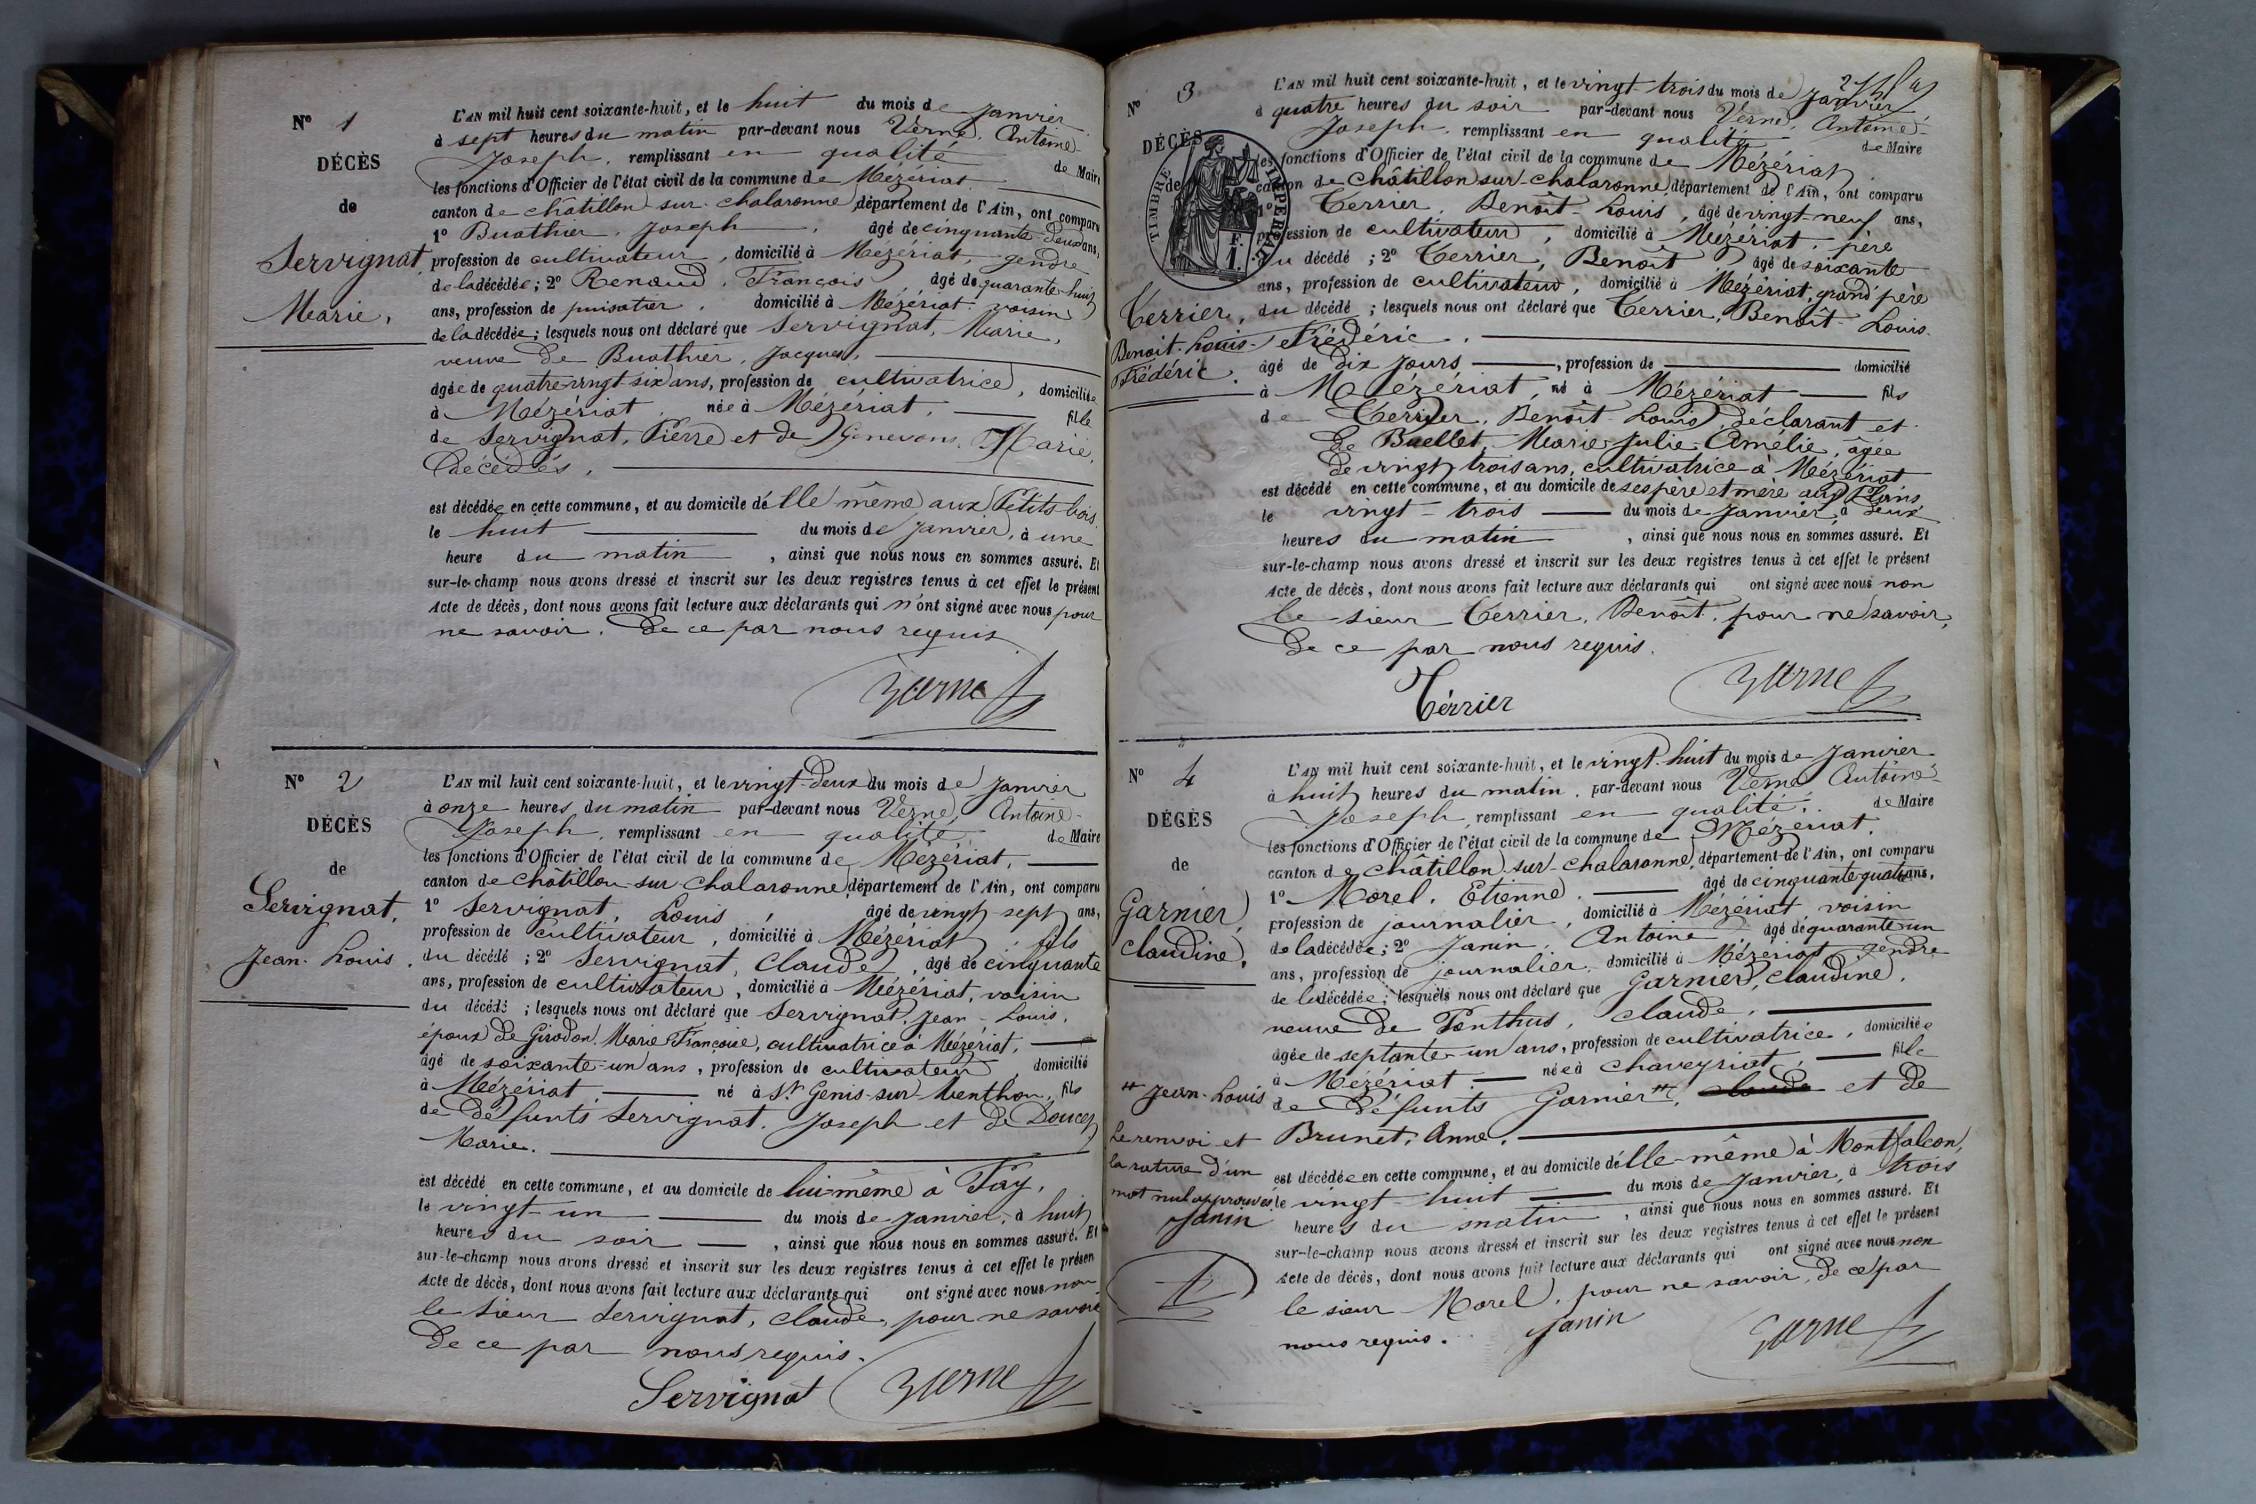 N° 1
DÉCÈS
de
Servignat
Marie.
L'AN mil huit cent soixante-huit, et le huit du mois de Janvier
à sept heures du matin par-devant nous Verne, Antoine-
Joseph, remplissant en qualité de Maire
les fonctions d'Officier de l'état civil de la commune de Mézériat
canton de châtillon sur chalaronne, département de l'Ain, ont comparu
1° Buathier, Joseph, âgé de cinquante-deux ans,
profession de cultivateur, domicilié à Mézériat, gendre
de la décédée; 2° Renaud, François âgé de quarante-huit
ans, profession de puisatier, domicilié à Mézériat voisin
de la décédée; lesquels nous ont déclaré que Servignat, Marie,
veuve de Buathier, Jacques,
âgée de quatre-vingt-six ans, profession de cultivatrice, domiciliée
à Mézériat, née à Mézériat, fille
de Servignat, Pierre et de Marie,
décédés,
est décédée en cette commune, et au domicile d'elle même aux Petits bois
le huit du mois de Janvier, à une
heure du matin, ainsi que nous nous en sommes assuré. Et
sur-le-champ nous avons dressé et inscrit sur les deux registres tenus à cet effet le présent
Acte de décès, dont nous avons fait lecture aux déclarants qui n'ont signé avec nous pour
ne savoir. De ce par nous requis
Verne
N° 2
DÉCÈS
de
Servignat,
Jean-Louis.
L'AN mil huit cent soixante-huit, et le vingt-deux du mois de Janvier
à onze heures du matin par-devant nous Verne, Antoine-
Joseph, remplissant en qualité de Maire
les fonctions d'Officier de l'état civil de la commune de Mézériat,
canton de châtillon-sur-chalaronne, département de l'Ain, ont comparu
1° Servignat, Louis, âgé de vingt-sept ans,
profession de cultivateur, domicilié à Mézériat, fils
du décédé; 2° Servignat, Claude, âgé de cinquante
ans, profession de cultivateur, domicilié à Mézériat, voisin
du décédé; lesquels nous ont déclaré que Servignat, Jean-Louis,
époux de Girodon, Marie Françoise, cultivatrice à Mézériat,
âgé de soixante-un ans, profession de cultivateur, domicilié
à Mézériat né à St Genis-sur-Menthon, fils
de défunts Servignat, Joseph et de Doucet,
Marie.
est décédé en cette commune, et au domicile de lui-même à Fay,
le vingt-un du mois de Janvier, à huit
heures du soir, ainsi que nous nous en sommes assuré. Et
sur-le-champ nous avons dressé et inscrit sur les deux registres tenus à cet effet le présen
Acte de décès, dont nous avons fait lecture aux déclarants qui ont signé avec nous non
le sieur Servignat, Claude, pour ne savoir
De ce par nous requis.
Servignat Verne
N° 3
DÉCÈS
de
TIMBRE IMPERIAL
F.
1.
Terrier,
Benoit-Louis-
Frédéric.
L'AN mil huit cent soixante-huit, et le vingt trois du mois de Janvier
à quatre heures du soir par-devant nous Verne, Antoine-
Joseph, remplissant en qualité de Maire
les fonctions d'Officier de l'état civil de la commune de Mézériat
canton de châtillon sur-chalaronne, département de l'Ain, ont comparu
1° Terrier, Benoit-Louis, âgé de vingt-neuf ans,
profession de cultivateur, domicilié à Mézériat, père
du décédé; 2° Terrier, Benoît, âgé de soixante
ans, profession de cultivateur, domicilié à Mézériat, grand père
du décédé; lesquels nous ont déclaré que Terrier, Benoît-Louis-
Frédéric.
âgé de dix jours, profession de domicilié
à Mézériat, né à Mézériat fils
de Terrier, Benoît-Louis, déclarant et
de Buellet, Marie-Julie-Amélie, âgée
de vingt trois ans, cultivatrice à Mézériat
est décédé en cette commune, et au domicile de ses père et mère aux Plains
le vingt-trois du mois de Janvier, à deux
heures du matin, ainsi que nous nous en sommes assuré. Et
sur-le-champ nous avons dressé et inscrit sur les deux registres tenus à cet effet le présent
Acte de décès, dont nous avons fait lecture aux déclarants qui ont signé avec nous non
le sieur Terrier, Benoît, pour ne savoir,
De ce par nous requis.
Térrier Verne
N° 4
DÉCÈS
de
Garnier,
claudine.
L'AN mil huit cent soixante-huit, et le vingt-huit du mois de Janvier
à huit heures du matin, par-devant nous Verne Antoine-
Joseph, remplissant en qualité de Maire
les fonctions d'Officier de l'état civil de la commune de Mézériat,
canton de châtillon-sur-chalaronne, département de l'Ain, ont comparu
1° Morel, Etienne, âgé de cinquante-quatre ans,
profession de journalier, domicilié à Mézériat voisin
de la décédée; 2° Janin, Antoine âgé de quarante-un
ans, profession de journalier, domicilié à Mézériat gendre
de la décédée; lesquels nous ont déclaré que Garnier, claudine,
veuve de Ponthus, claude,
âgée de septante-un ans, profession de cultivatrice, domiciliée
à Mézériat, née à chaveyriat, fille
de défunts Garnier#, claude et de
Brunet, Anne,
# Jean-Louis
Le renvoi et
la rature d'un
mot nul approuvés
Janin
est décédée en cette commune, et au domicile d'elle-même à Montfalcon,
le vingt-huit du mois de Janvier, à trois
heures du matin, ainsi que nous nous en sommes assuré. Et
sur-le-champ nous avons dressé et inscrit sur les deux registres tenus à cet effet le présent
Acte de décès, dont nous avons fait lecture aux déclarants qui ont signé avec nous non
le sieur Morel, pour ne savoir, de ce par
nous requis. Janin Verne